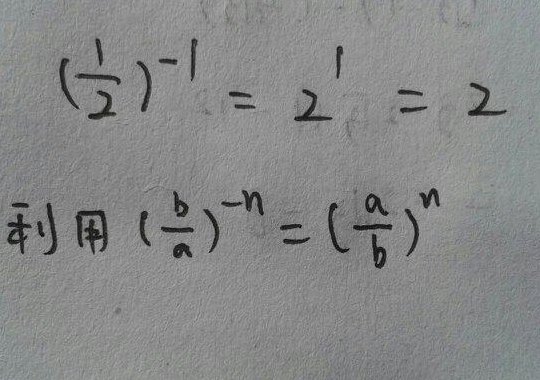 (1/2)^-1 = 2^1 = 2
利用 (b/a)^-n = (a/b)^n